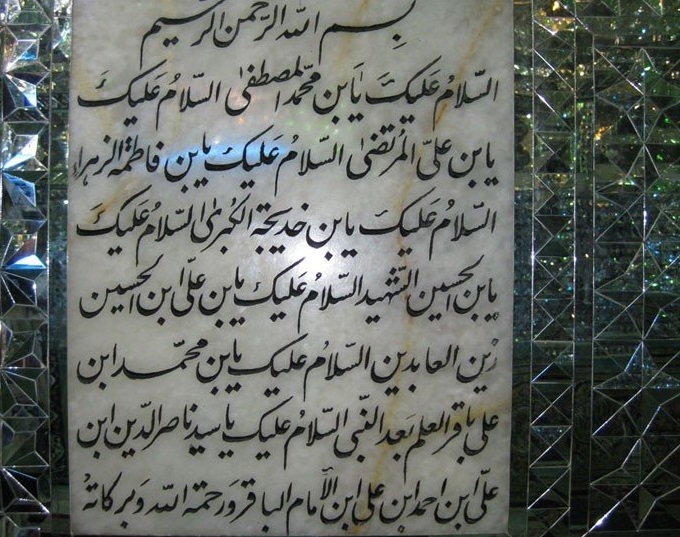 بسم الله الرحمن الرحیم
السّلامُ عَلیکَ یَابن محّمد المصطفیٰ السّلامُ عَلیکَ
یابن علیّ المُرتضیٰ السّلامُ عَلیکَ یابن فاطمة الزهراء
السّلامُ عَلیکَ یابن خدیجة الکُبریٰ السّلامُ عَلیکَ
یابن الحسین الشّهید السّلامُ عَلیکَ یابن علیّ ابن الحسین
زین العابدین السّلامُ علیکَ یابن محمّد ابن
علی باقر العلم بَعد النّبی السّلامُ علیکَ یا سید ناصر الدّین ابن
علیّ ابن احمد ابن علی ابن الأمام الباقر وَرحمة اللّه وَبرکاتهُ